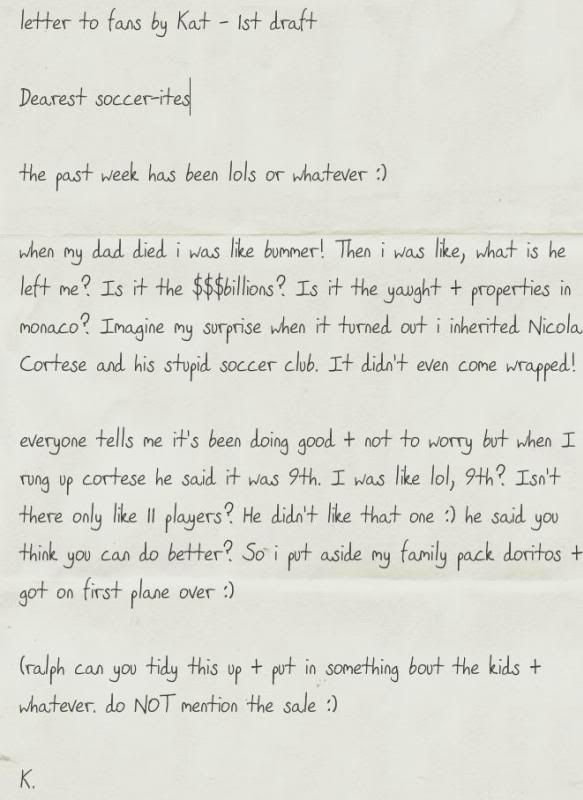 letter to fans by Kat - 1st draft
Dearest soccer-ites
the past week has been lols or whatever :)
when my dad died i was like bummer! Then i was like, what is he
left me? Is it the $$$billions? Is it the yaught + properties in
monaco? Imagine my surprise when it turned out i inherited Nicola
Cortese and his stupid soccer club. It didn't even come wrapped!
everyone tells me it's been doing good + not to worry but when I
rung up cortese he said it was 9th. I was like lol, 9th? Isn't
there only like 11 players? He didn't like that one :) he said you
think you can do better? So i put aside my family pack doritos +
got on first plane over :)
(ralph can you tidy this up + put in something bout the kids +
whatever. do NOT mention the sale :)
K.